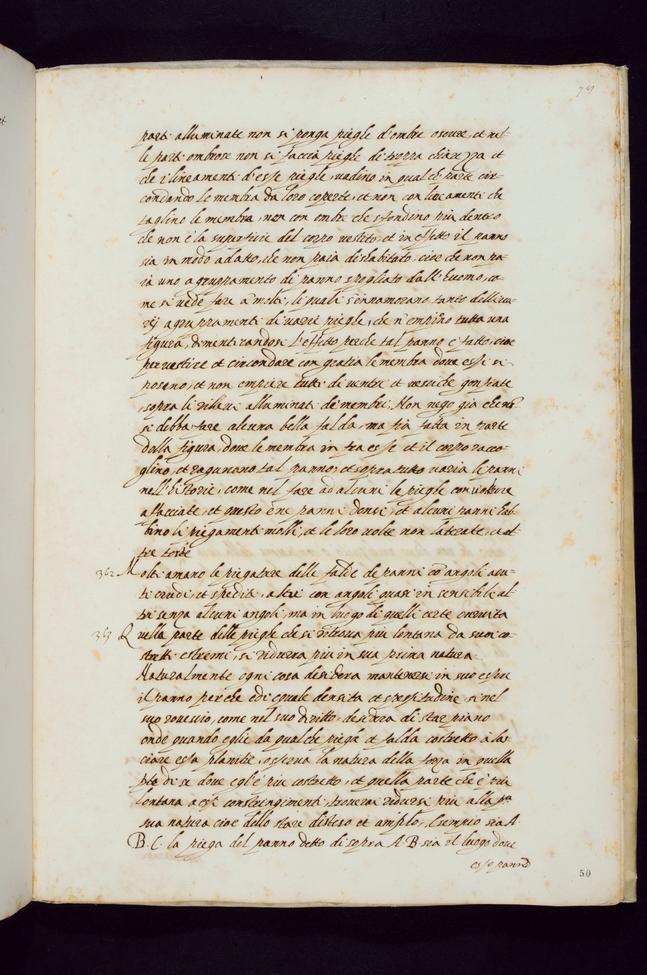 79
parti alluminate non si ponga pieghe d'ombre oscure, et nel
le parti ombrose non si faccia pieghe di troppa chiarezza et
che i lineamenti d'esse pieghe vadino in qualche parte cir
condando le membra da loro coperte, et non con lineamenti che
taglino le membra, non con ombre che sfondino più dentro
che non è la superficie del corpo vestito, et in effetto il panno
sia in modo adatto, che non paia dishabitato, cioè che non pa
ia uno agruppamento di panno spogliato dall'huomo, co
me si vede fare a molti, li quali s'innamorano tanto delli va
rij agruppamenti di varie pieghe, che n'empino tutta una
figura, dimenticandosi l'effetto perche tal panno è fatto, cioè
per vestire et circondare con gratia le membra dove essi si
posano, et non empiere tutti di ventre et vesciche gonfiate
sopra li rilievi alluminati de membri. Non nego già che non
si debba fare alcuna bella falda, ma sia fatta in parte
della figura, dove le membra in fra esse et il corpo racco
glino, et ragunano tal panno, et sopra tutto varia le panni
nell'historie, come nel fare ad alcuni le pieghe con rotture
affacciate, et questo è ne panni densi, et alcuni panni hab
bino li piegamenti molli, et le loro volte non laterate, et al
tre torte
362 Molti amano le piegature delle falde de panni con angoli acu
ti crudi, et spediti, altri con angoli quasi insensibili al
tri senza alcuni angoli, ma in luogo di quelli certe curvità
363 Quella parte delle pieghe che si ritrova più lontana da suoi co
stretti estremi, si ridurrà più in sua prima natura.
Naturalmente ogni cosa desidera mantenersi in suo essere
il panno perche è di equale densità et spessitudine, si nel
suo rovescio, come nel suo diritto, desidera di star piano
onde quando egli è da qualche piega et falda costretto à la
sciare essa planitie, osserva la natura della forza in quella
parte di se dove egli è più costretto, et quella parte che è più
lontana a essi constringimenti troverai ridursi più alla prima
sua natura cioè dello stare disteso et amplo, esempio sia A.
B. C. la piega del panno detto di sopra A. B. sia il luogo dove
esso panno
50